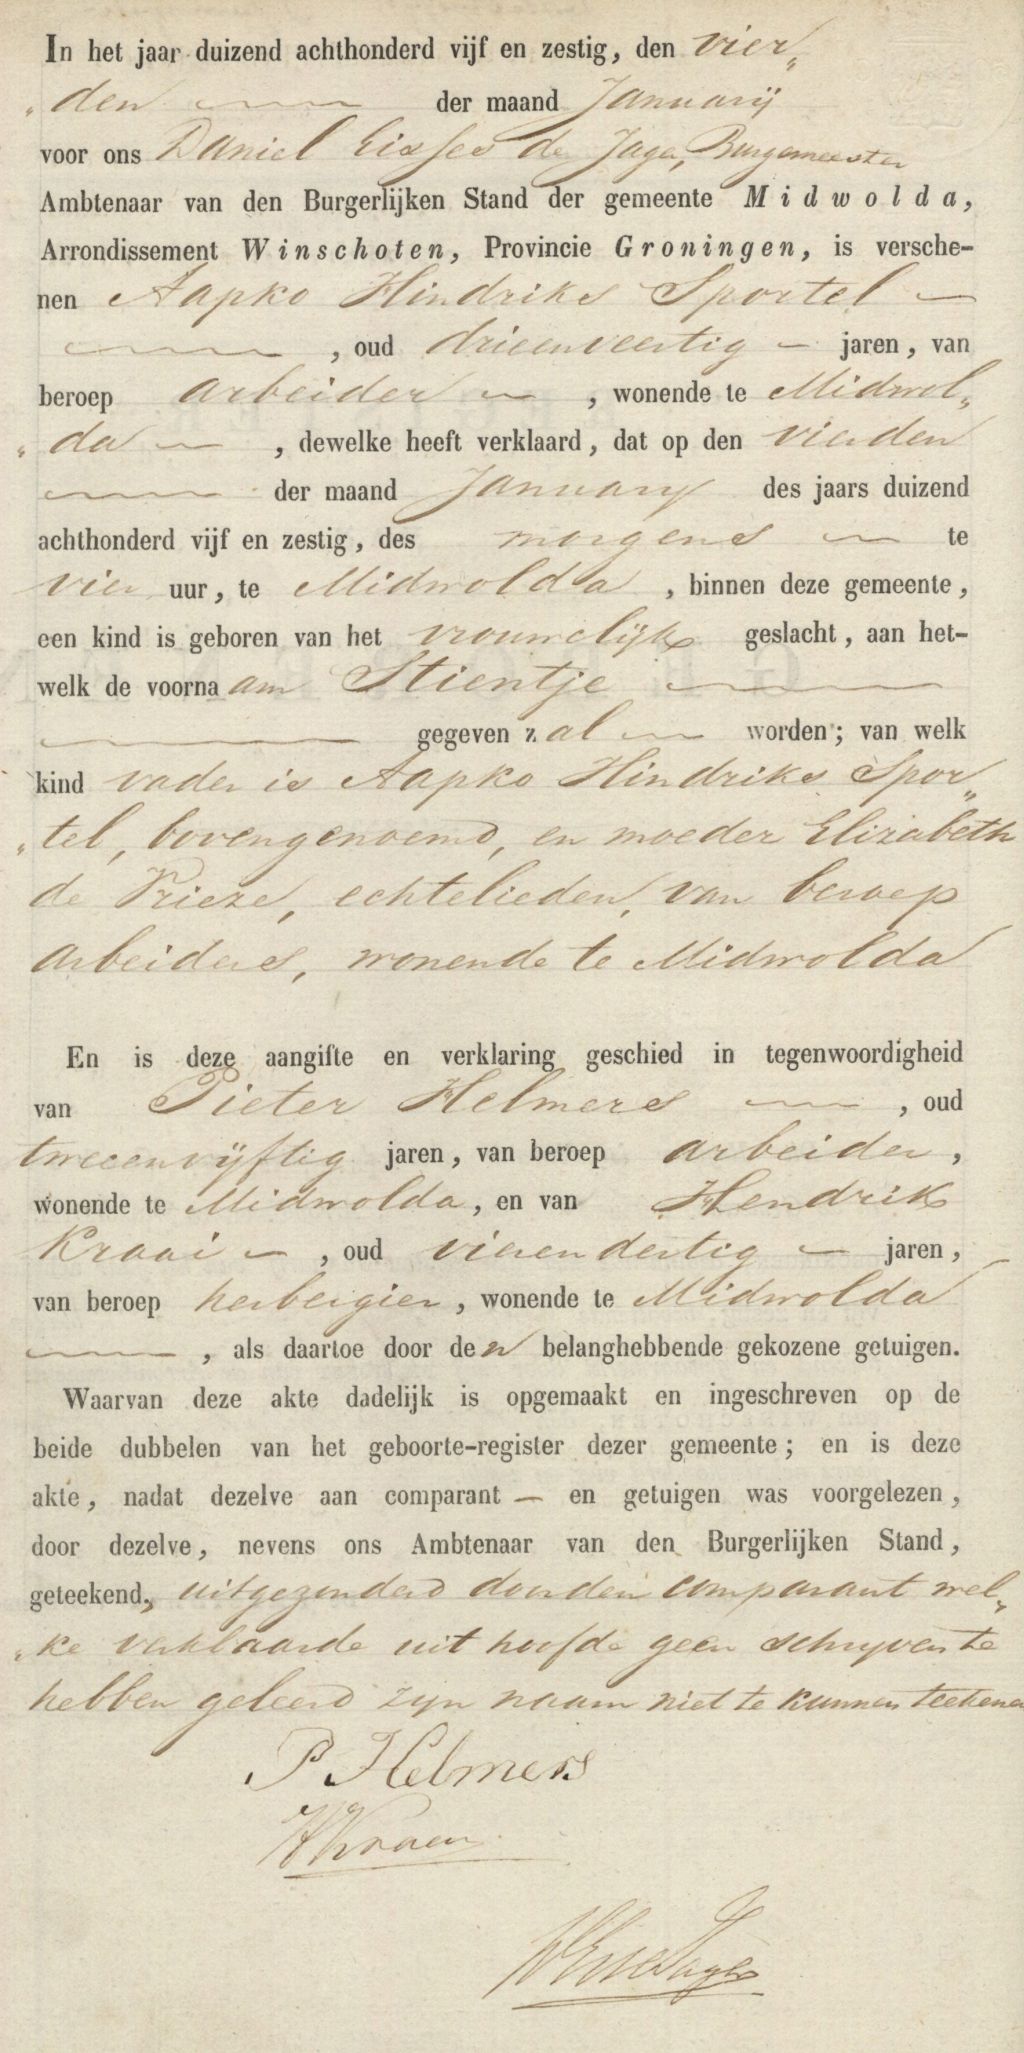 In het jaar duizend achthonderd vijf en zestig, den vier„
„den der maand Januarij
voor ons Daniel Eisses de Jager, Burgemeester
Ambtenaar van den Burgerlijken Stand der gemeente Midwolda,
Arrondissement Winschoten, Provincie Groningen, is versche-
nen Aapko Hindriks Sportel —
—, oud drieenveertig — jaren, van
beroep arbeider —, wonende te Midwol„
„da —, dewelke heeft verklaard, dat op den vierden
— der maand January des jaars duizend
achthonderd vijf en zestig, des morgens — te
vier uur, te Midwolda, binnen deze gemeente,
een kind is geboren van het vrouwelijk geslacht, aan het-
welk de voornaam Stientje —
— gegeven zal — worden; van welk
kind vader is Aapko Hindriks Spor„
„tel, bovengenoemd, en moeder Elizabeth
de Vrieze, echtelieden, van beroep
arbeiders, wonende te Midwolda
En is deze aangifte en verklaring geschied in tegenwoordigheid
van Pieter Helmers —, oud
tweeenvijftig jaren, van beroep arbeider,
wonende te Midwolda, en van Hendrik
Kraai —, oud vierendertig — jaren,
van beroep herbergier, wonende te Midwolda
—, als daartoe door den belanghebbende gekozene getuigen.
Waarvan deze akte dadelijk is opgemaakt en ingeschreven op de
beide dubbelen van het geboorte-register dezer gemeente; en is deze
akte, nadat dezelve aan comparant — en getuigen was voorgelezen,
door dezelve, nevens ons Ambtenaar van den Burgerlijken Stand,
geteekend, uitgezonderd door den comparant wel„
„ke verklaarde uit hoofde geen schryven te
hebben geleerd zyn naam niet te kunnen teekenen
P Helmers
H Kraai